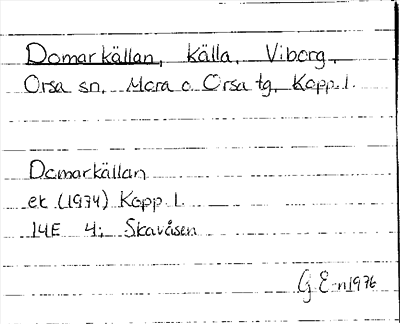 Domarkällan, källa, Viborg,
Orsa sn, Mora o Orsa tg, Kopp. l.
Domarkällan
ek (1974) Kopp l.
14E 4: Skavåsen
G E-n 1976